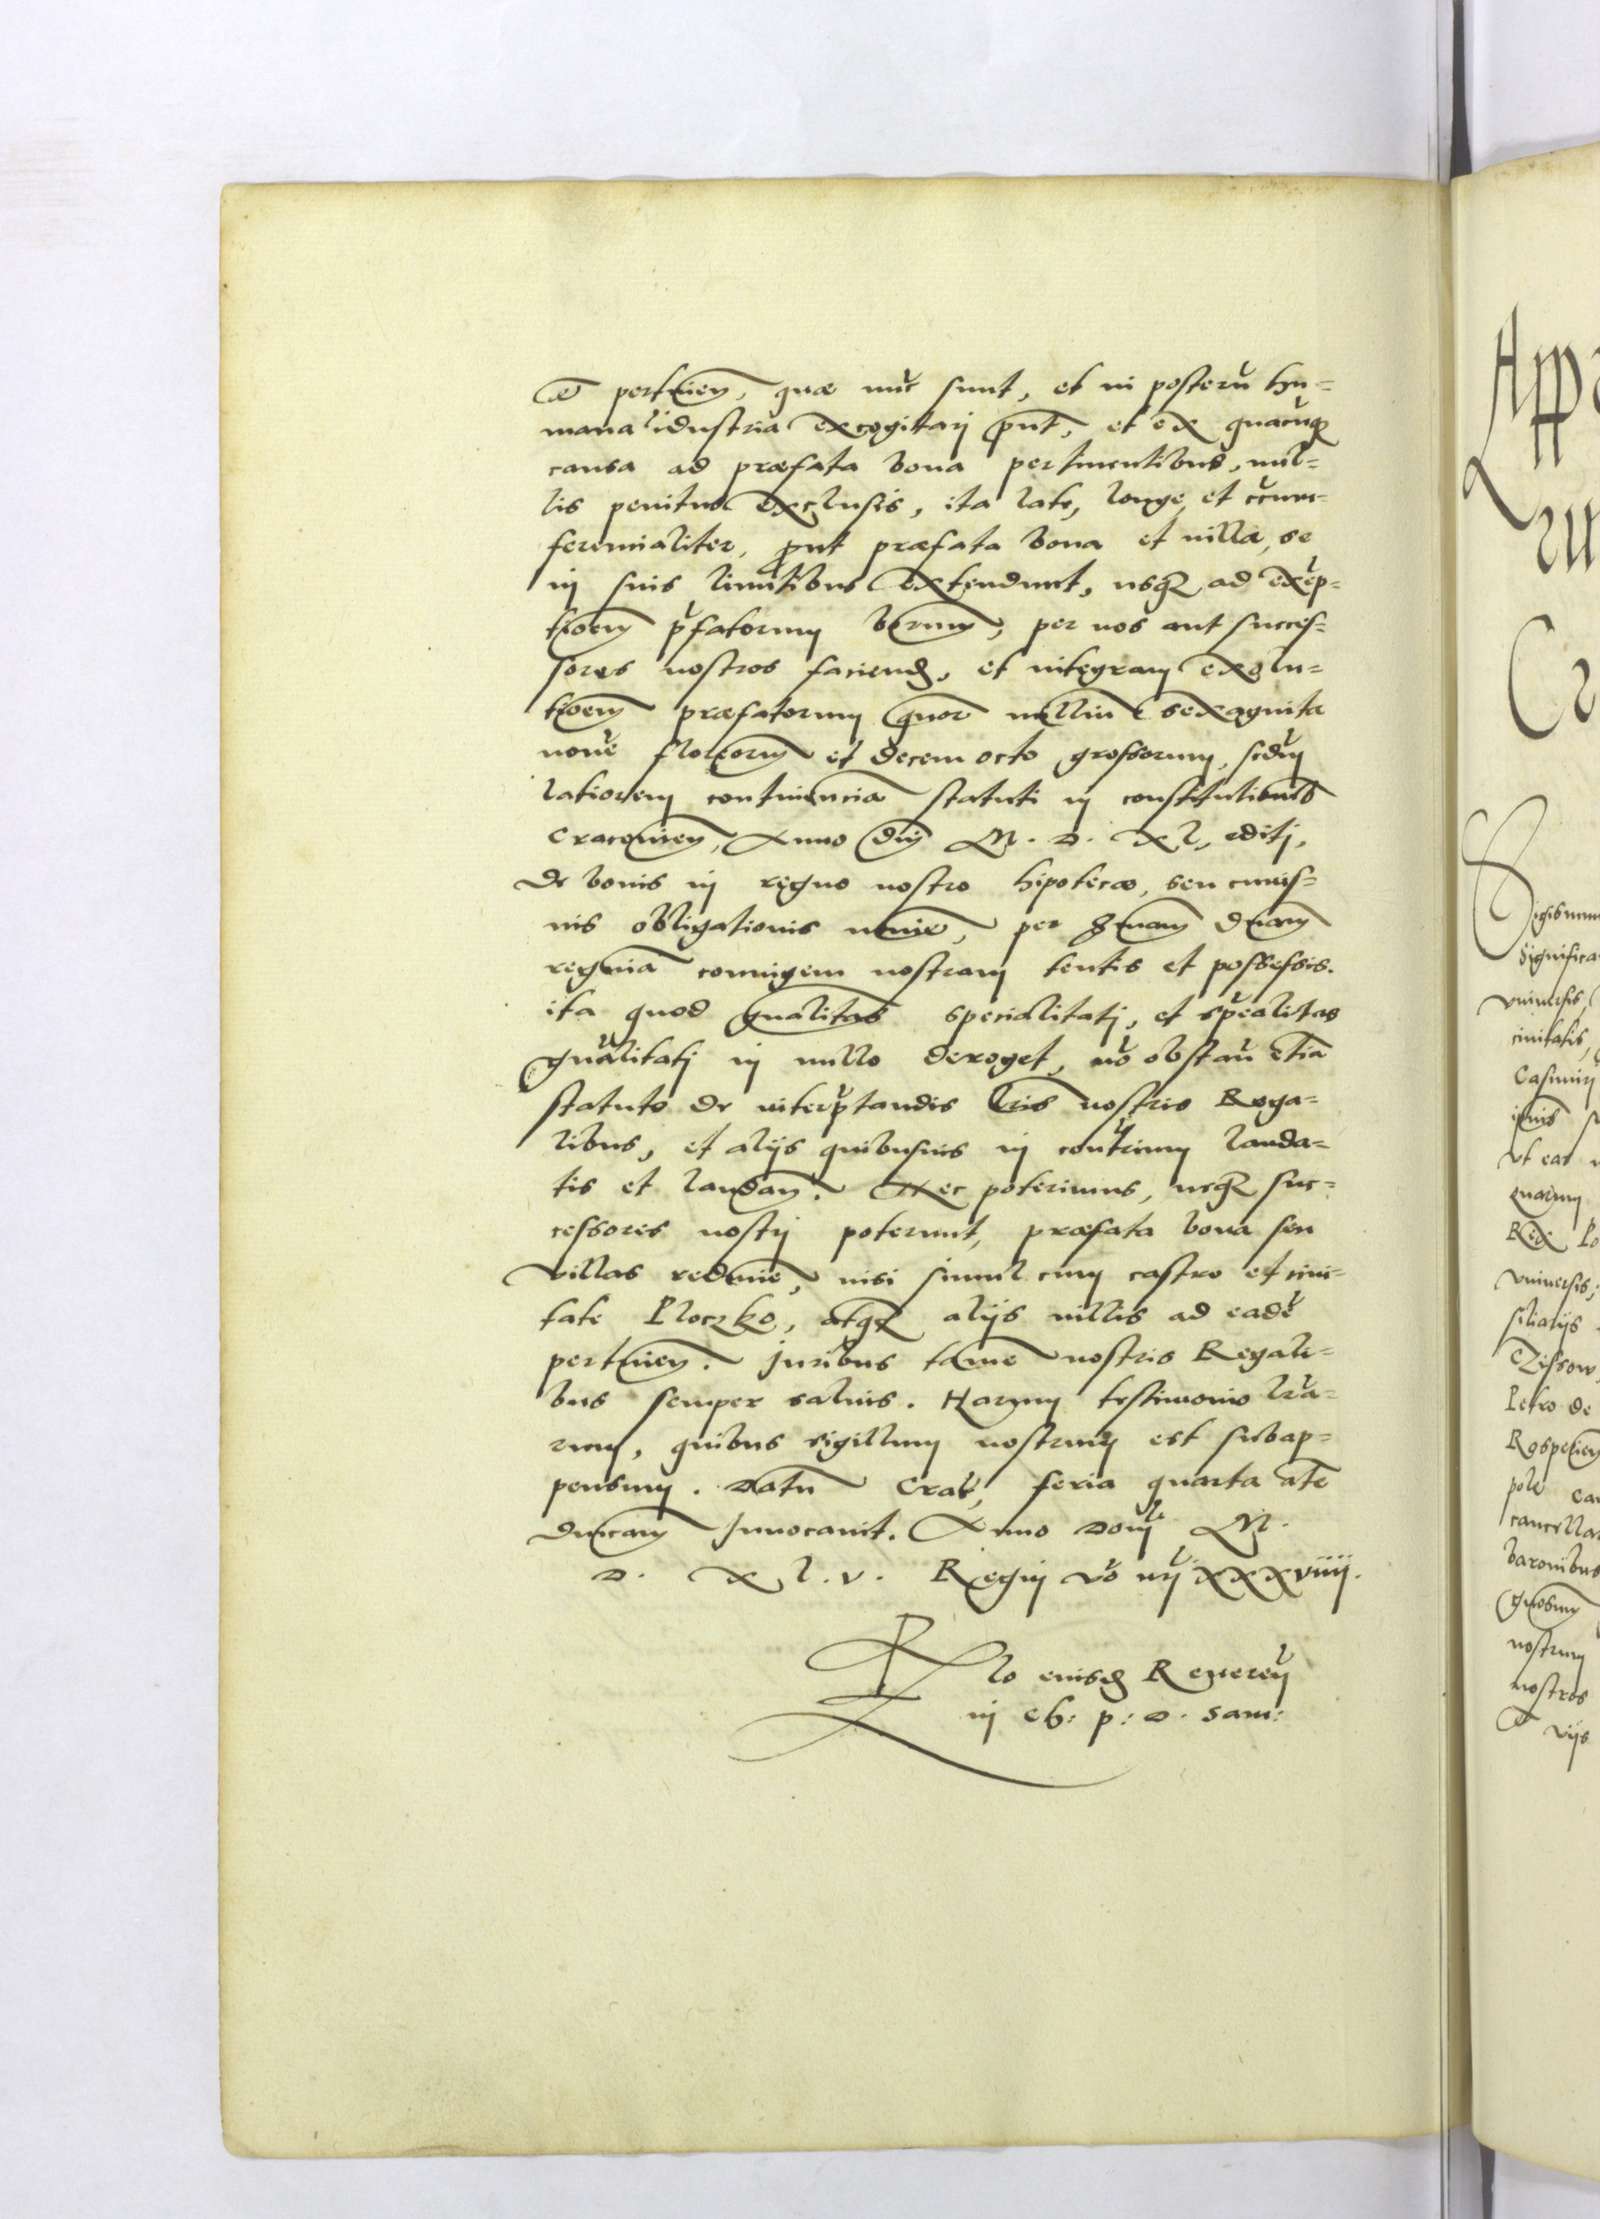 pertinen, quæ nuc sunt, et in posterū hu-
mana idustria excogitarij pnt, et ex quacuq
causa ad præfata bona pertinentibus, nul-
lis penitus exclusis, ita late, longe, et circum-
ferencialiter, put præfata bona et villæ, se
in suis limitibus extendunt, usq ad exep-
tioem pfatorum borum, per nos aut succes-
sores nostros faciend, et integram exolu-
tioem præfatorum quor millium sexaginta
nove florenorum et decem octo grossorum, scdm
latiorem continencia statuti in constitutionibus
Cracovien, Anno dni M. D. XL, editj,
de bonis in regno nostro hipotecæ, seu cuius-
vis obligationis nomie, per Smam dnam
regina coniugem nostram tentis et possessis.
ita quod gnalitas specialitatj, et spealitas
gnalitatj in nullo deroget, no obstan etia
statuto de interptandis Lris nostris Rega-
libus, et alijs quibusuis in contrium lauda-
tis et laudan. Nec poterimus, neq suc-
cessores nostrj poterunt, præfata bona seu
villas redimere, nisi simul cum castro et civi-
tate Ploczko, atq alijs villis ad eade
pertinen. Juribus tame nostris Regali-
bus semper salvis. Harum testimonio lra-
rum, quibus sigillum nostrum est subap-
pensum. Datu Crac, feria quarta ate
dnicam Invocavit. Anno Domi M.
D. X L. V. Regni vo nri xxxviiij.
Rlo eiusd Reveren
in Ch: p: D. Sam:
App
Cr
Sigismun
significa
universis,
civitatis,
Casimirj
ut eas
quarum
Reg Po
universis,
Czissow
Petro de
Rospecien
pole ca
cancella
baronibus
nostrum
nostros
vijs